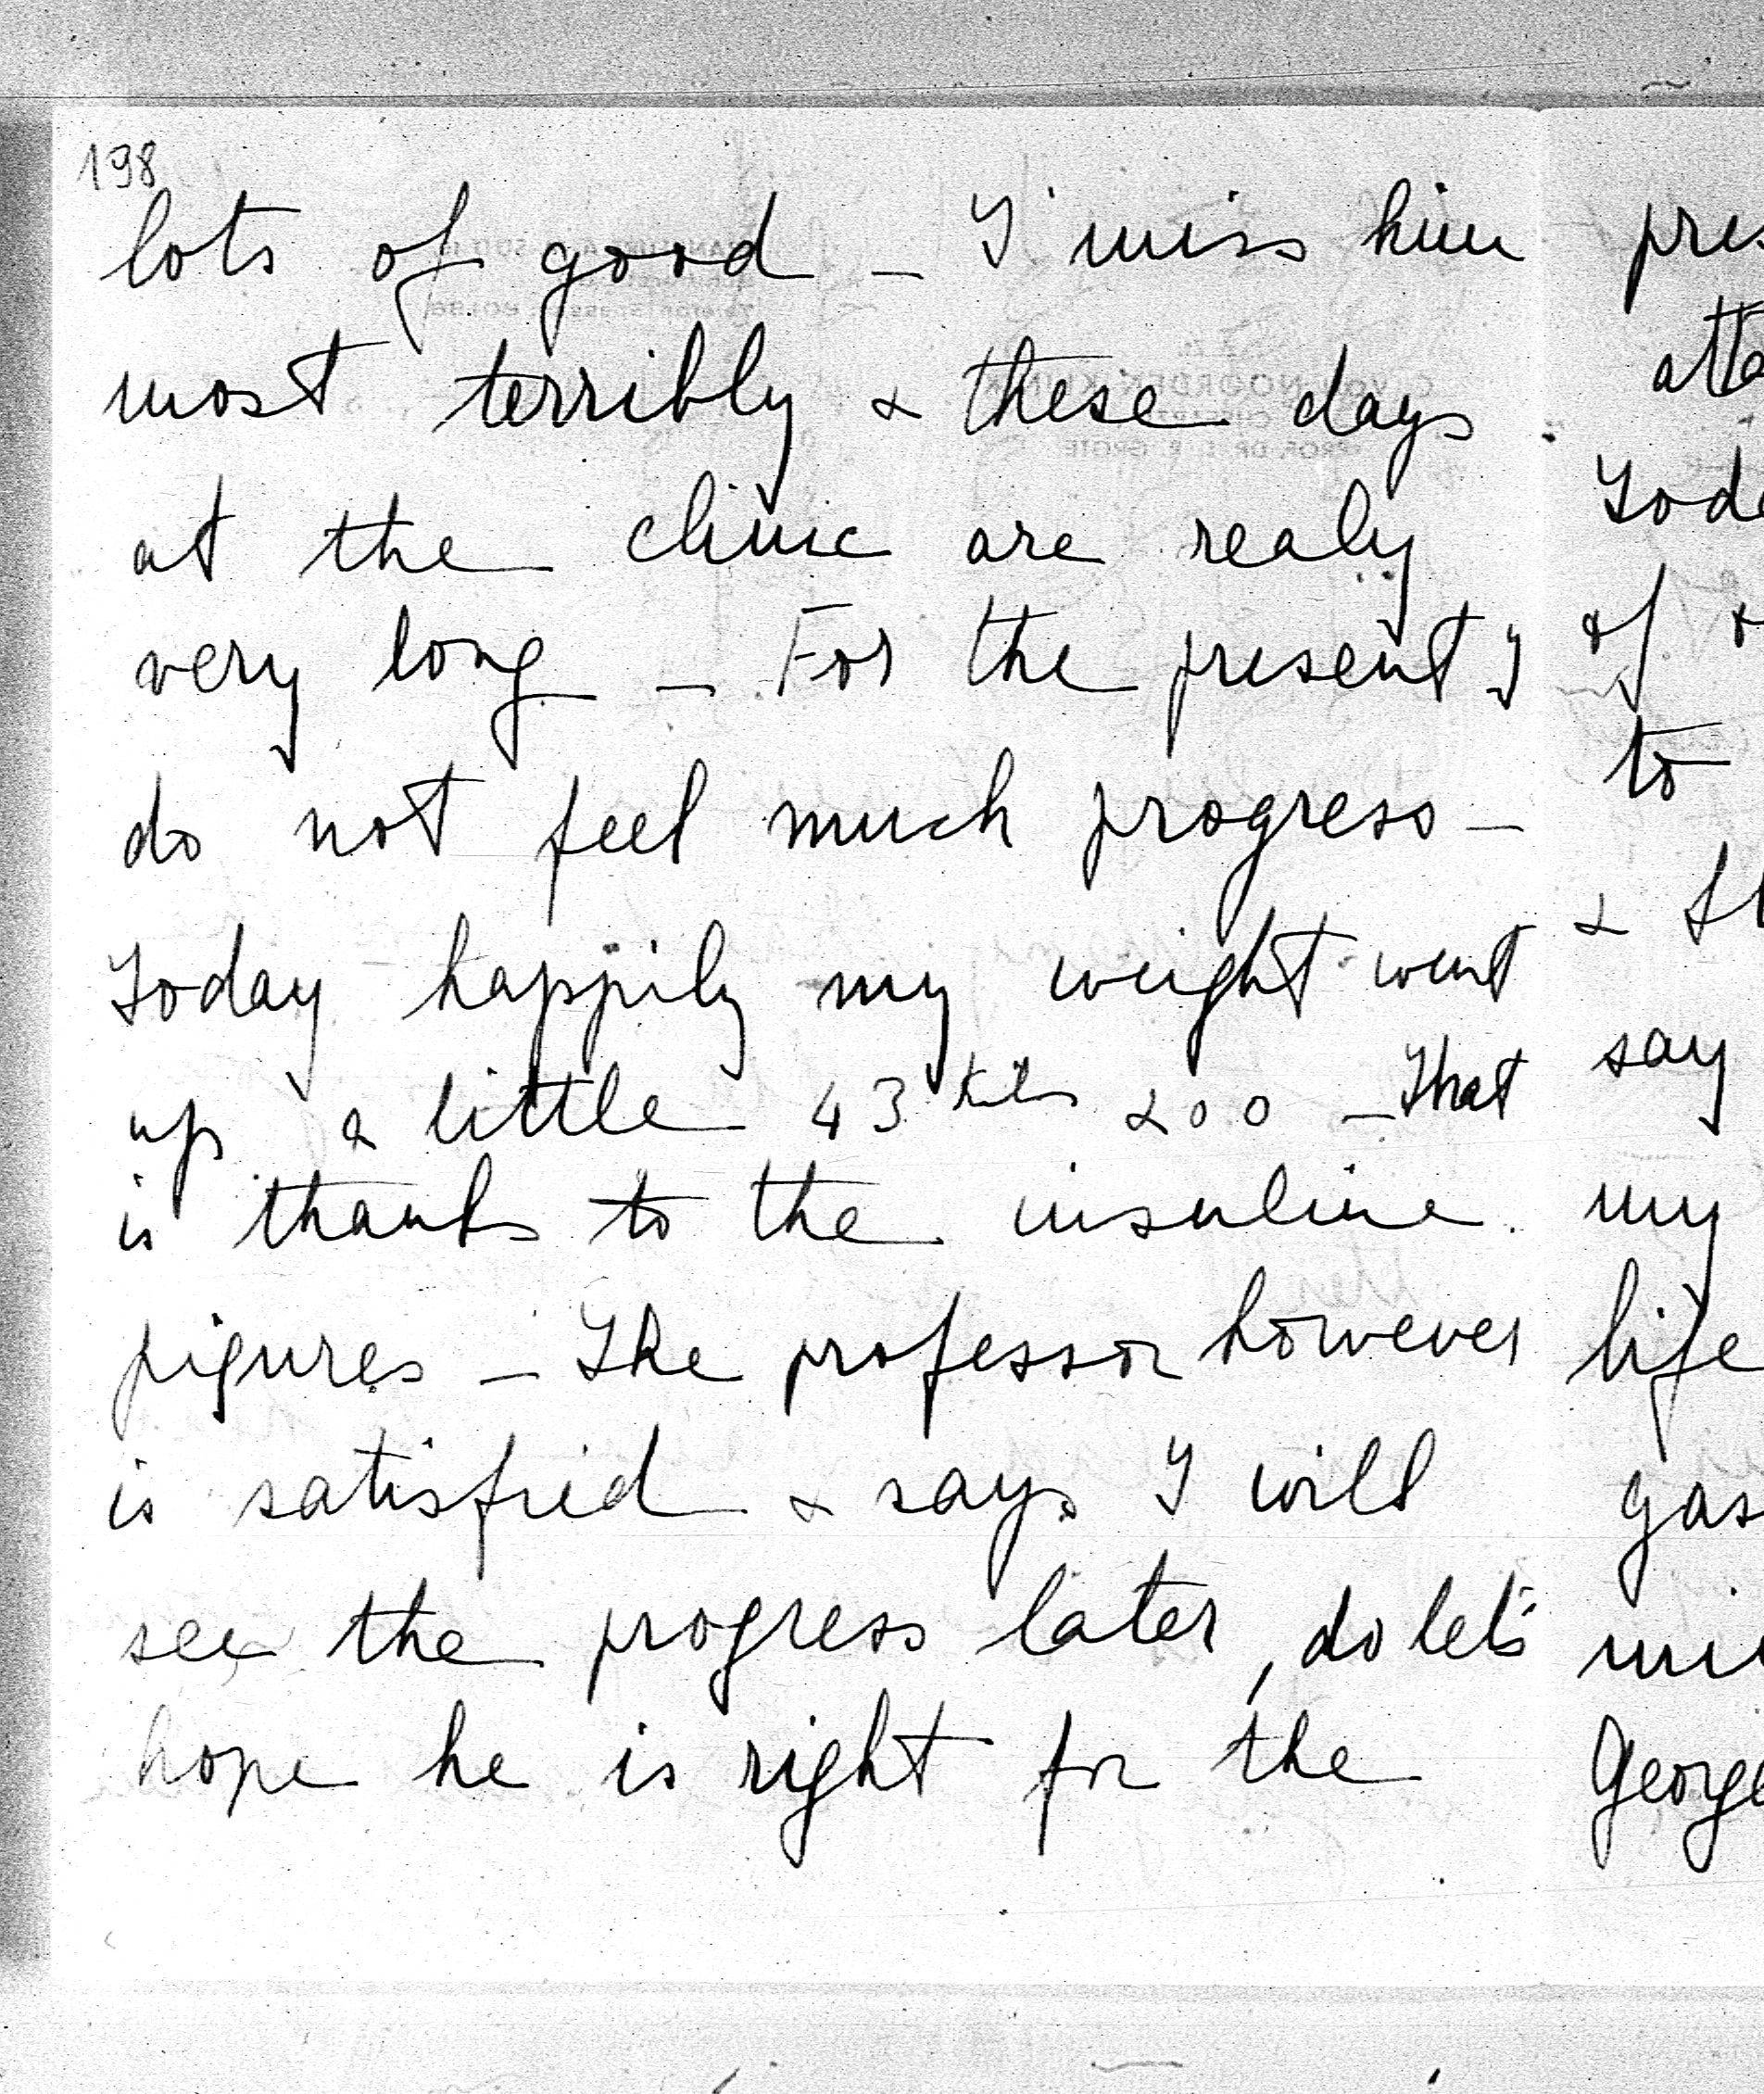 198
lots of good _ I miss him
most terribly & these days
at the clinic are realy
very long _ For the present I
do not feel much progress _
Today happily my weight went
up a little 43 Kilos 200 _ That
is thanks to the insuline
pigures _ The professor however
is satisfied & says I will
see the progress later, do let's
hope he is right for the
pres
atte
Toda
of
to
&
say
my
life
gas
mi
George